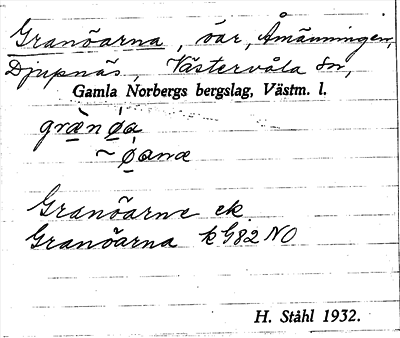 Granöarna, öar, Åmänningen,
Djupnäs, Västervåla sn,
Gamla Norbergs bergslag, Västm. l.
græ̀nø̀a
~ øana
Granöarne ek
Granöarna k G82 NO
H. Ståhl 1932.